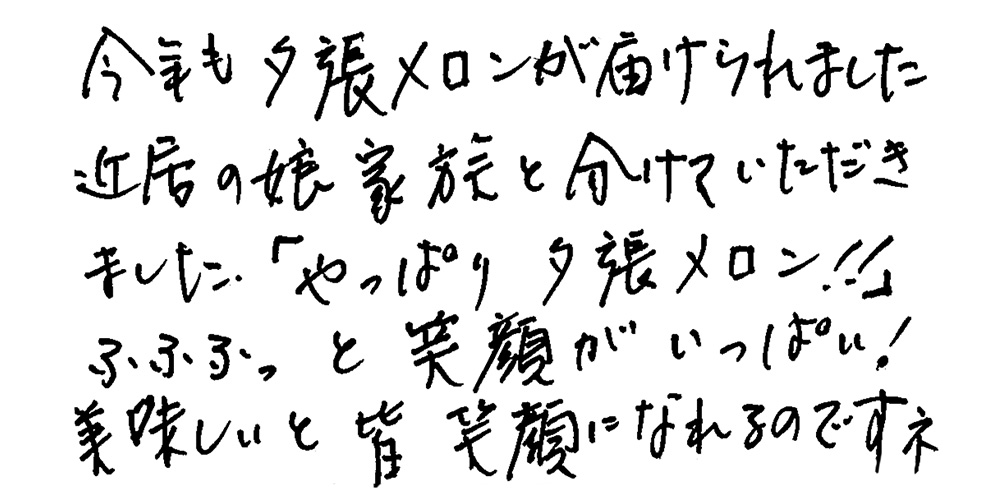 今年も夕張メロンが届けられました
近居の娘家族と分けていただき
ました.「やっぱり夕張メロン!!」
ふふふっと笑顔がいっぱい!
美味しいと皆笑顔になれるのですネ